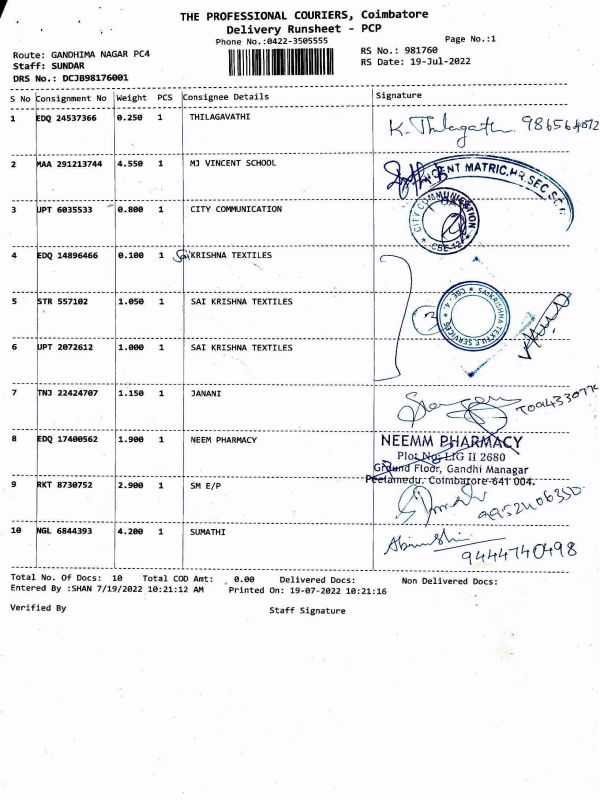 THE PROFESSIONAL COURIERS, Coimbatore
Delivery Runsheet - PCP
Phone No.:0422-3505555
Page No.:1
Route: GANDHIMA NAGAR PC4
RS No.: 981760
Staff: SUNDAR
RS Date: 19-Jul-2022
DRS No.: DCJB98176001
S No Consignment No Weight PCS Consignee Details Signature
1 EDQ 24537366 0.250 1 THILAGAVATHI
2 MAA 291213744 4.550 1 MJ VINCENT SCHOOL
MATRIC.HR.SEC.
3 UPT 6035533 0.800 1 CITY COMMUNICATION
CITY COMMUNICATION
4 EDQ 14896466 0.100 1 Sai KRISHNA TEXTILES
5 STR 557102 1.050 1 SAI KRISHNA TEXTILES
SAI KRISHNA TEXTILE SERVICES ★ CBE - 4. ★
6 UPT 2072612 1.000 1 SAI KRISHNA TEXTILES
7 TNJ 22424707 1.150 1 JANANI
8 EDQ 17400562 1.900 1 NEEM PHARMACY
NEEMM PHARMACY
Plot No: LIG II 2680
Ground Floor, Gandhi Managar
Peelamedu. Coimbatore-641 004.
9 RKT 8730752 2.900 1 SM E/P
9952406350
10 NGL 6844393 4.200 1 SUMATHI
9444740498
Total No. Of Docs: 10 Total COD Amt: 0.00 Delivered Docs: Non Delivered Docs:
Entered By :SHAN 7/19/2022 10:21:12 AM Printed On: 19-07-2022 10:21:16
Verified By Staff Signature